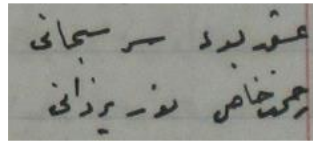 عشق بود سر سبحانی
رحمت خاص نور یزدانی